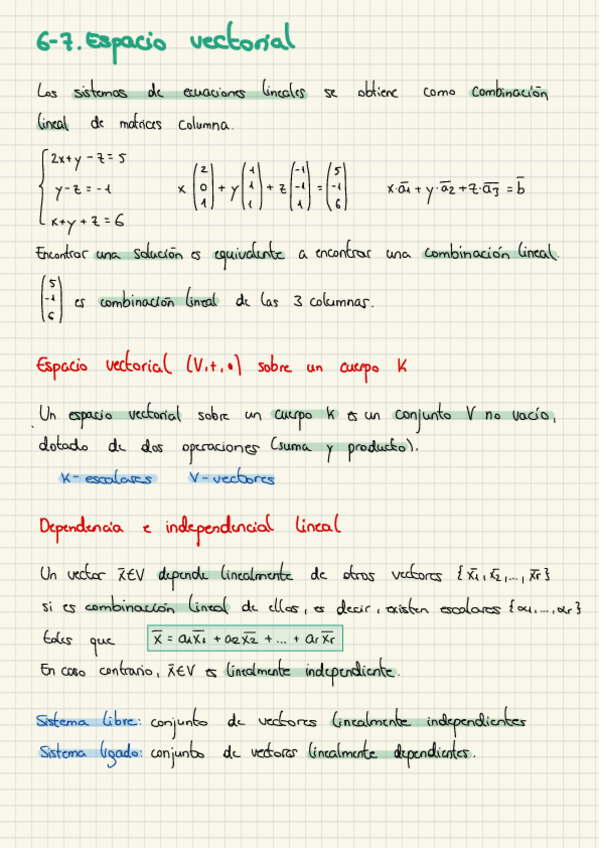 6-7. Espacio vectorial
Los sistemas de ecuaciones lineales se obtiene como combinación
lineal de matrices columna.
{ 2x+y-z=5
y-z=-1
x+y+z=6
x (2 0 1) + y (1 1 1) + z (-1 -1 1) = (5 -1 6)   x·a̅1 + y·a̅2 + z·a̅3 = b̅
Encontrar una solución es equivalente a encontrar una combinación lineal.
(5 -1 6) es combinación lineal de las 3 columnas.
Espacio vectorial (V,+,•) sobre un cuerpo K
Un espacio vectorial sobre un cuerpo K es un conjunto V no vacío,
dotado de dos operaciones (suma y producto).
K- escalares   V- vectores
Dependencia e independencial lineal
Un vector x̅∈V depende linealmente de otros vectores {x̅1, x̅2, ..., x̅r}
si es combinación lineal de ellos, es decir, existen escalares {α1, ..., αr}
tales que   x̅ = a1x̅1 + a2x̅2 + ... + arx̅r
En caso contrario, x̅∈V es linealmente independiente.
Sistema libre: conjunto de vectores linealmente independientes
Sistema ligado: conjunto de vectores linealmente dependientes.